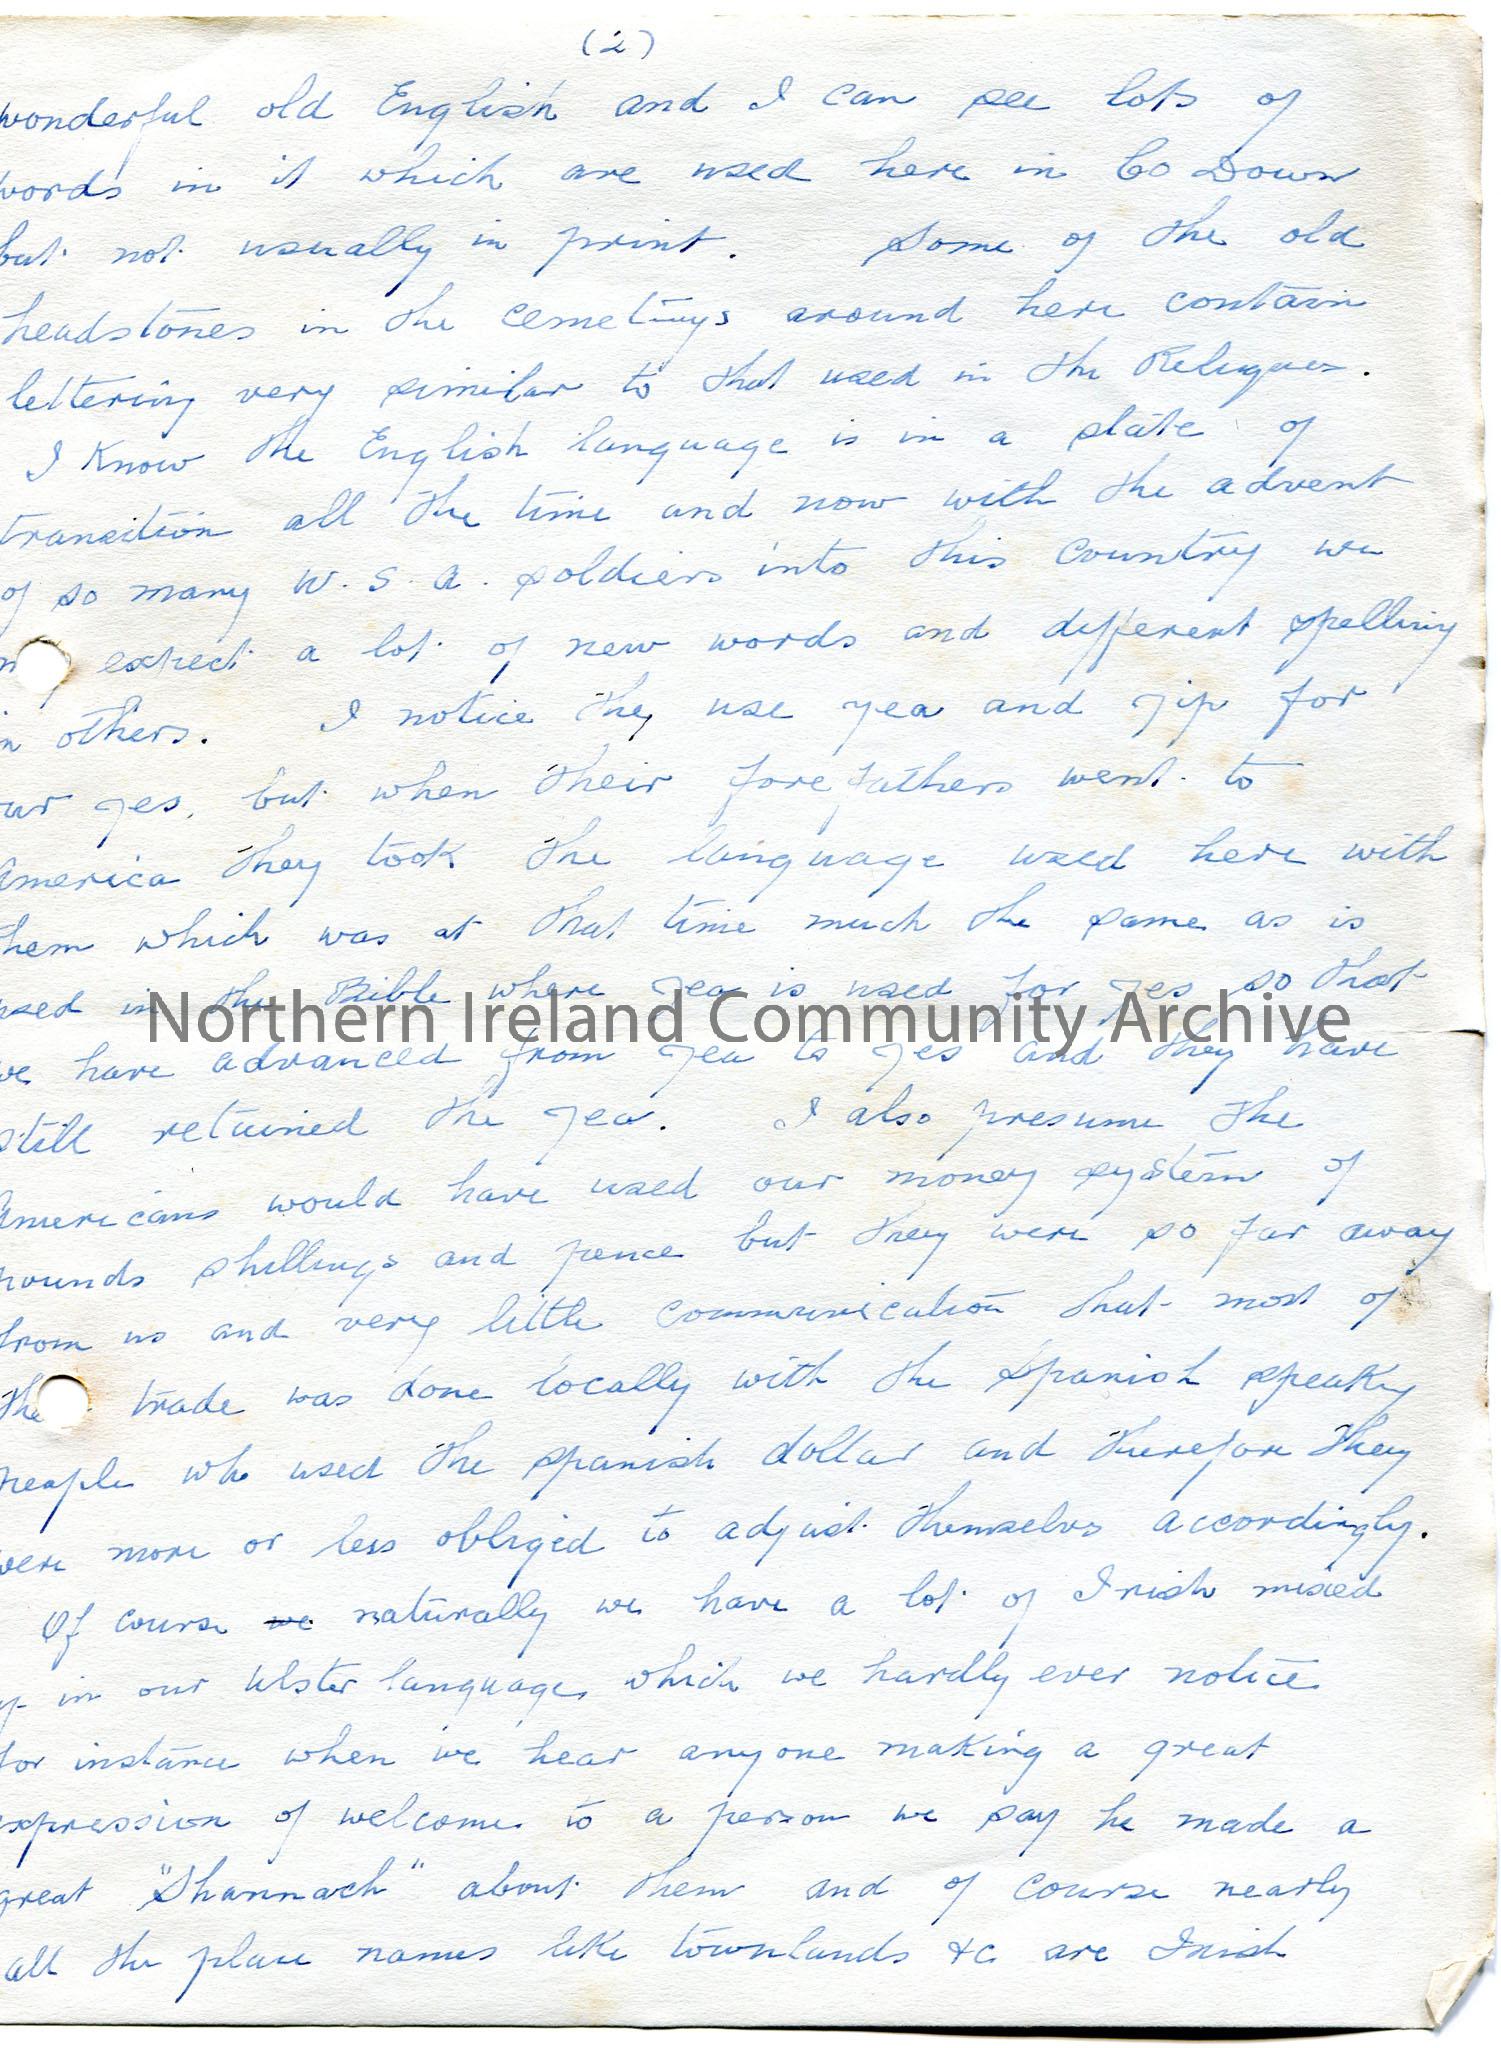 (2)
wonderful old English and I can see lots of
words in it which are used here in Co Down
but not usually in print. Some of the old
headstones in the cemetirys around here contain
lettering very similar to that used in the
I know the English language is in a state of
transition all the time and now with the advent
of so many U.S.A. soldiers into this country we
expect a lot of new words and different spelling
in others. I notice they use yea and yip for
our yes, but when their forefathers went to
America they took the language used here with
them which was at that time much the same as is
used in the Bible where yea is used for yes so that
Northern Ireland Community Archive
we have advanced from yea to yes and they have
still retained the yea. I also presume the
Americans would have used our money system of
pounds shillings and pence but they were so far away
from us and very little communication that most of
the trade was done locally with the Spanish speakg
people who used the spanish dollar and therefore they
were more or less obliged to adjust themselvs accordingly.
Of course we naturally we have a lot of Irish mixed
up in our Ulster language, which we hardly ever notice
for instance when we hear anyone making a great
expression of welcome to a person we say he made a
great "Shannach" about them and of course nearly
all the place names like townlands &c are Irish